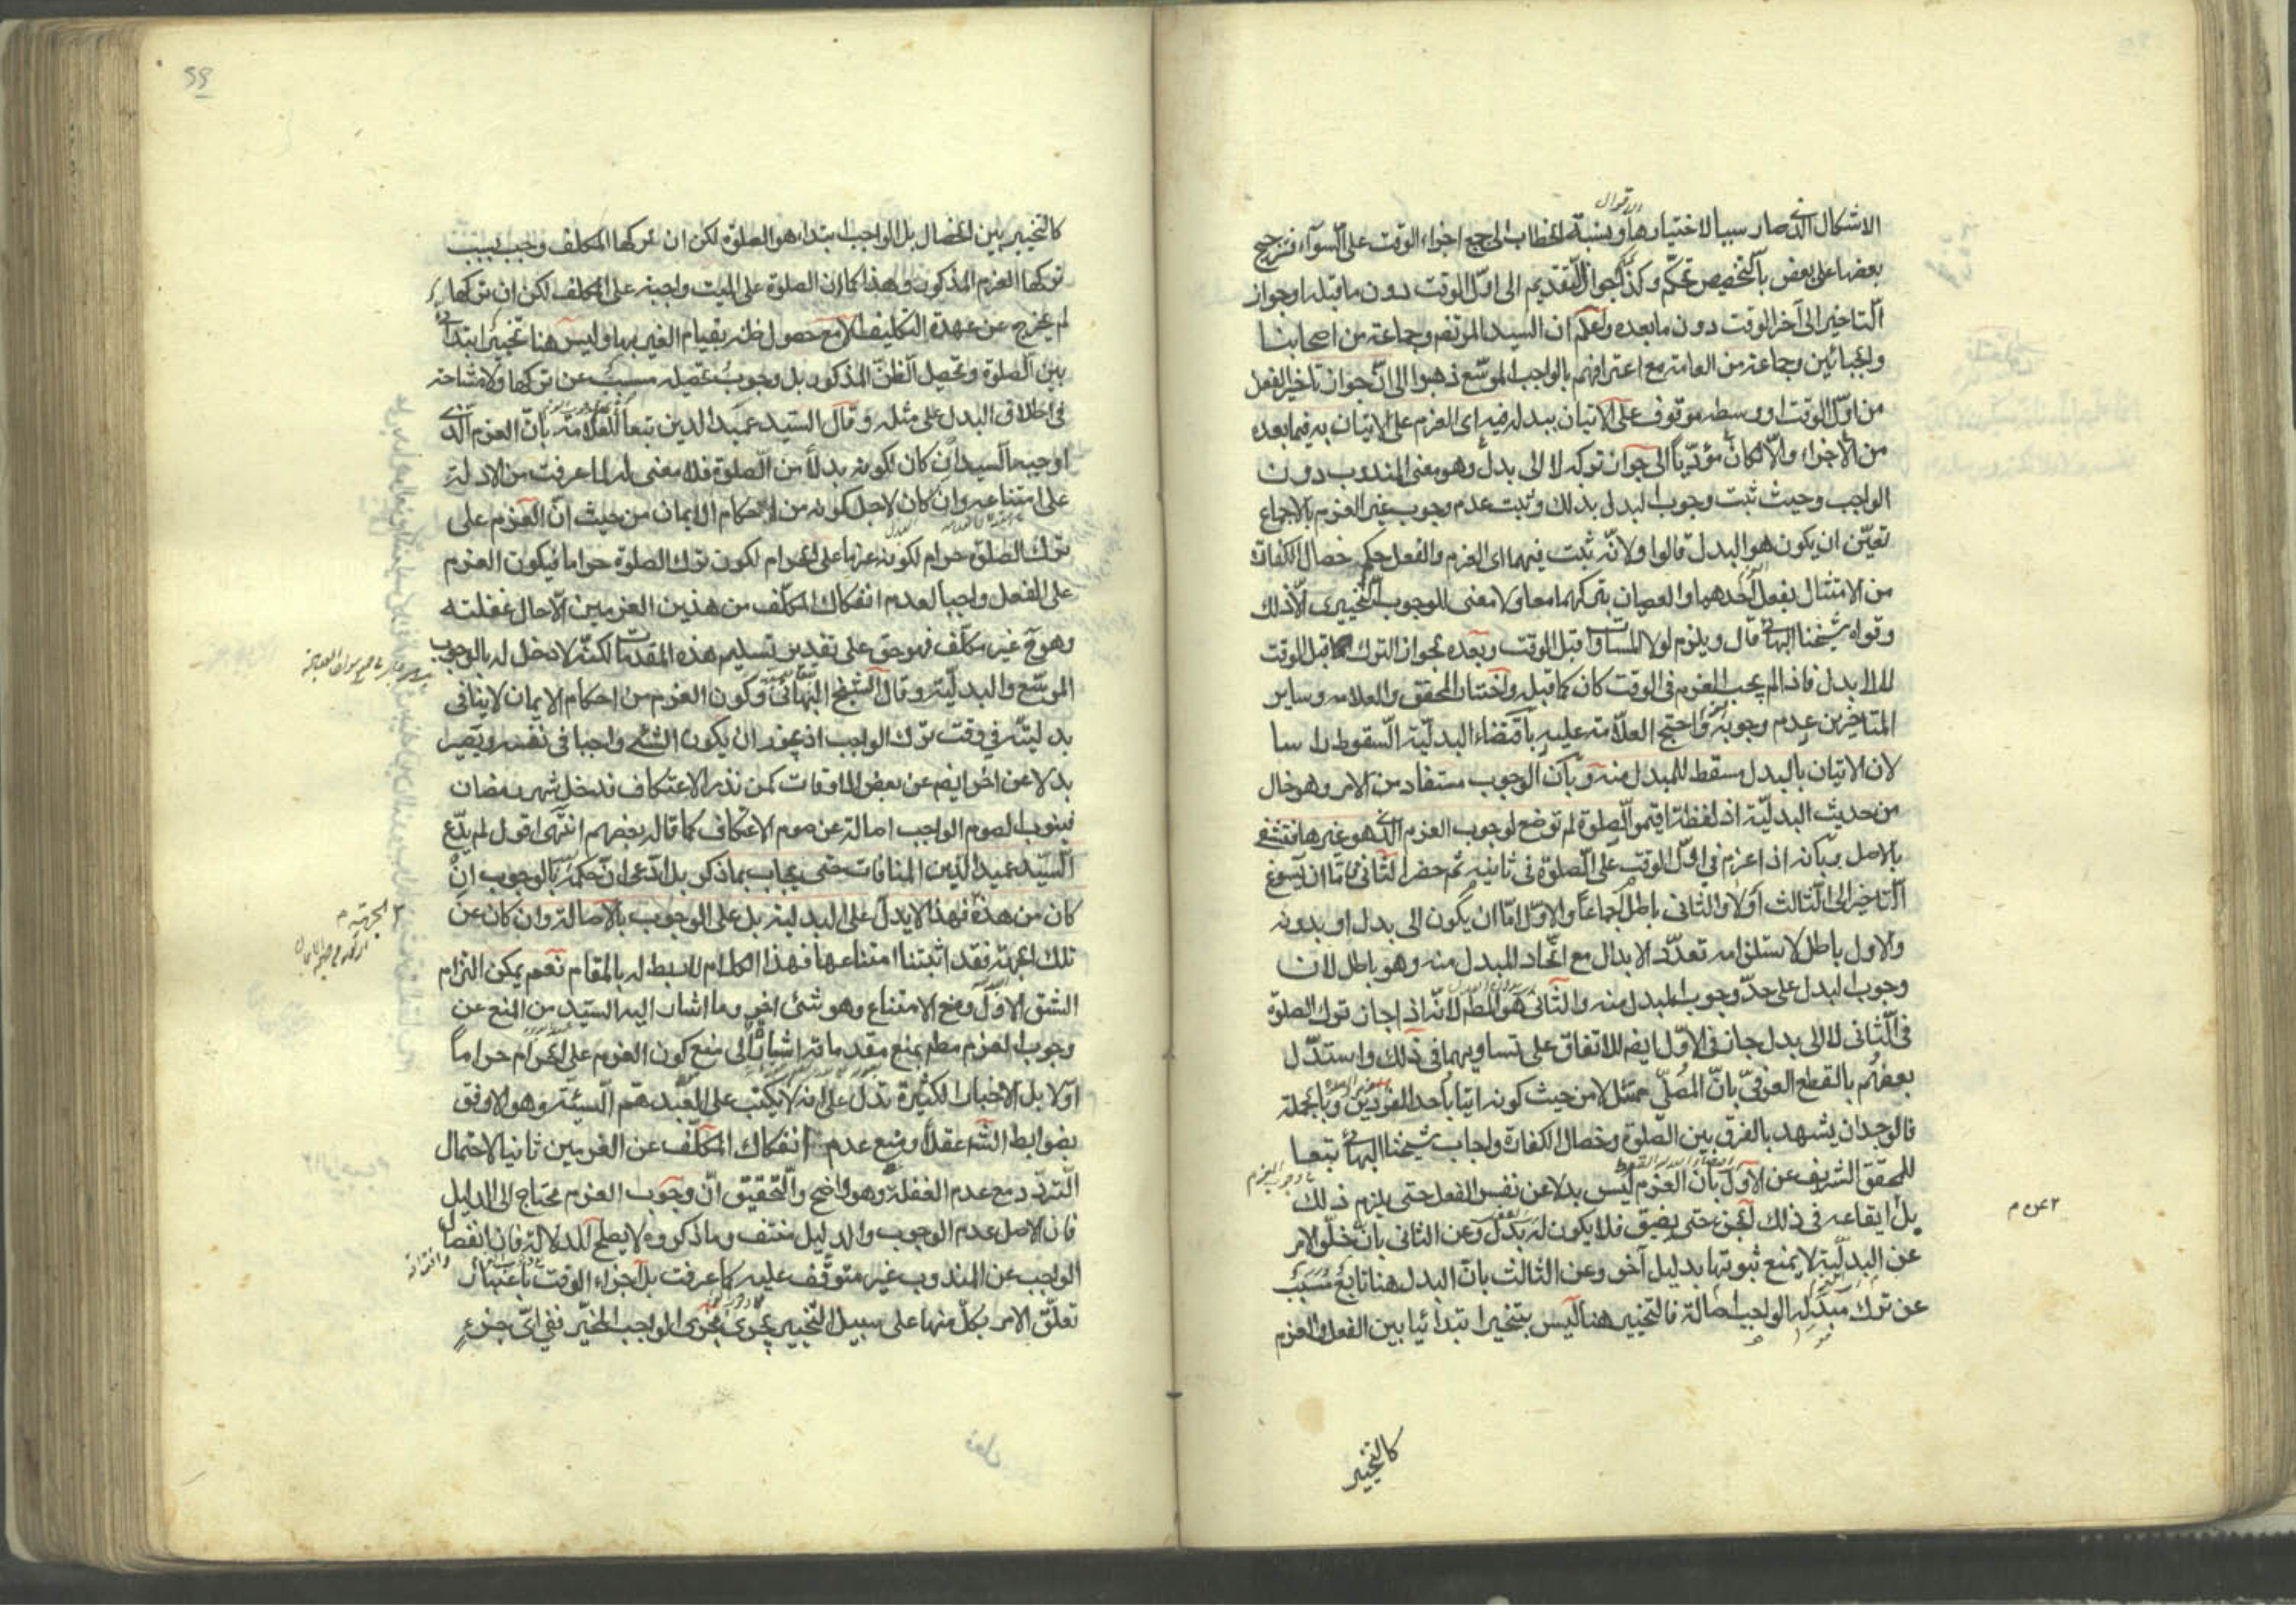 الاشكال الذى صار سببا لاختيارها ونسبة الخطاب الى جميع اجزاء الوقت على السوآء فترجيح
الاقوال
بعضها على بعض بالتخصيص تحكم وكذا جواز التقديم الى اول الوقت دون ما قبله او جواز
التاخير الى آخر الوقت دون ما بعده واعلم ان السيد المرتضى وجماعة من اصحابنا
والجبائين وجماعة من العامة مع اعترافهم بالواجب الموسع ذهبوا الى ان جواز تاخير الفعل
من اول الوقت او وسطه موقوف على الاتيان ببدله فيه اى العزم على الاتيان به فيما بعده
من الاجزاء والا لكان مؤديا الى جواز تركه لا الى بدل وهو معنى المندوب دون
الواجب وحيث ثبت وجوب البدل بذلك وثبت عدم وجوب غير العزم بالاجماع
تعين ان يكون هو البدل قالوا ولانه ثبت فيهما اى العزم والفعل حكم خصال الكفارة
من الامتثال بفعل احدهما والعصيان بتركهما معا ولا معنى للوجوب التخييرى الا ذلك
وقواه شيخنا البهائى قال ويلزم لولا المساواة قبل الوقت وبعده لجواز الترك قبل الوقت
لا الى بدل فاذا لم يجب العزم فى الوقت كان كما قبله واختار المحقق والعلامه وساير
المتاخرين عدم وجوبه واحتج العلامة عليه باقتضاء البدلية السقوط راسا
لان الاتيان بالبدل مسقط للمبدل منه وبان الوجوب مستفاد من الامر وهو خال
من حديث البدلية اذ لفظة اقيموا الصلوة لم توضع لوجوب العزم الذى هو غيرها فتنتفى
بالاصل وبانه اذا عزم فى اول الوقت على الصلوة فى ثانيه ثم حضر الثانى فاما ان يسوغ
التاخير الى الثالث اولا والثانى باطل اجماعا والاول اما ان يكون الى بدل او بدونه
والاول باطل لاستلزامه تعدد الابدال مع اتحاد المبدل منه وهو باطل لان
وجوب البدل على حد وجوب المبدل منه والثانى هو المطلوب لانه اذا جاز ترك الصلوة
فى الثانى لا الى بدل جاز فى الاول ايضا للاتفاق على تساويهما فى ذلك واستدل
بعضهم بالقطع العرفى بان المصلى ممتثل لا من حيث كونه اتيا باحد الفردين وبالجملة
فالوجدان يشهد بالفرق بين الصلوة وخصال الكفارة واجاب شيخنا البهائى تبعا
للمحقق الشريف عن الاول بان العزم ليس بدلا عن نفس الفعل حتى يلزم ذلك
بل ايقاعه فى ذلك الجزء حتى يضيق فلا يكون له بدل وعن الثانى بان خلو الامر
عن البدلية لا يمنع ثبوتها بدليل آخر وعن الثالث بان البدل هنا تابع مسبب
عن ترك مبدله الواجب اصالة فالتخيير هنا ليس تخييرا ابتدائيا بين الفعل والعزم
كالتخيير
كالتخيير بين الخصال بل الواجب ابتداء هو الصلوة لكن ان تركها المكلف وجب بسبب
تركها العزم المذكور وهذا كما ان الصلوة على الميت واجبة على المكلف لكن ان تركها
لم يخرج عن عهدة التكليف الا مع حصول ظنه بقيام الغير بها وليس هنا تخييرا ابتدائى
بين الصلوة وتحصيل الظن المذكور بل وجوب تحصيله مسبب عن تركها ولا مشاحة
فى اطلاق البدل على مثله وقال السيد عميد الدين تبعا للعلامة بان العزم الذى
اوجبه السيد ان كان لكونه بدلا من الصلوة فلا معنى له لما عرفت من الادلة
على امتناعه وان كان لاجل كونه من احكام الايمان من حيث ان العزم على
ترك الصلوة حرام لكونه عزما على الحرام لكون ترك الصلوة حراما فيكون العزم
على الفعل واجبا لعدم انفكاك المكلف من هذين العزمين الا حال غفلته
وهو ح غير مكلف فهو حق على تقدير تسليم هذه المقدمات لكنه لا دخل له بالوجوب
الموسع والبدلية وقال الشيخ البهائى وكون العزم من احكام الايمان لا ينافى
بدليته فى وقت ترك الواجب اذ يجوز ان يكون الشئ واجبا فى نفسه ويصير
بدلا عن اخر ايضا عن بعض الاوقات كمن نذر الاعتكاف فدخل شهر رمضان
فينوب الصوم الواجب اصالة عن صوم الاعتكاف كما قاله بعضهم انتهى اقول لم يدع
السيد عميد الدين المنافات حتى يجاب بما ذكر بل ادعى ان حكمه بالوجوب ان
كان من هذه فهذا لا يدل على البدلية بل على الوجوب بالاصالة وان كان عن
تلك الجهة فقد اثبتنا امتناعها فهذا الكلام لا ربط له بالمقام نعم يمكن التزام
الشق الاول ومنع الامتناع وهو شئ اخر وما اشار اليه السيد من المنع عن
وجوب العزم مط بمنع مقدماته اشارة الى منع كون العزم على الحرام حراما
اولا بل الاخبار الكثيرة تدل على انه لا يكتب على العبد هم السيئة وهو الاوفق
بضوابط الشه عقلا ومنع عدم انفكاك المكلف عن العزمين ثانيا لاحتمال
التردد مع عدم الغفلة وهو واضح والتحقيق ان وجوب العزم محتاج الى الدليل
فان الاصل عدم الوجوب والدليل منتف وما ذكروه لا يصلح للدلالة فان انفصال
الواجب عن المندوب غير متوقف عليه كما عرفت بل اجزاء الوقت باعتبار
تعلق الامر بكل منها على سبيل التخيير تجرى مجرى الواجب المخير ففى اى جزء